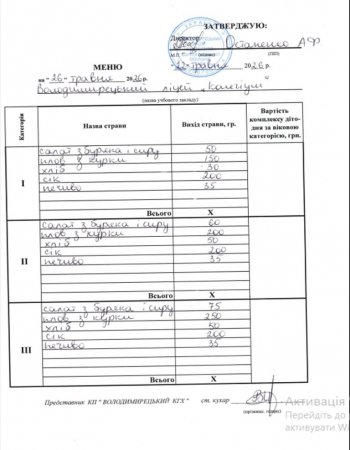 ЗАТВЕРДЖУЮ:
Директор Остапенко А Ф
М.П. (підпис) (ПІП)
МЕНЮ 22 травня 2026 р.
на - 26 - травня 2026р.
Володимирецький ліцей "Колегіум"
(назва учбового закладу)
Категорія Назва страви Вихід страви, гр. Вартість комплексу діто-дня за віковою категорією, грн.
салат з буряка і сиру 50
плов з курки 150
I хліб 30
сік 200
печиво 35
Всього X
салат з буряка і сиру 60
плов з курки 200
II хліб 50
сік 200
печиво 35
Всього X
салат з буряка і сиру 75
плов з курки 250
хліб 50
III сік 200
печиво 35
Всього X
Представник КП " ВОЛОДИМИРЕЦЬКИЙ КГХ " ст. кухар
Активація
Перейдіть до
активувати W